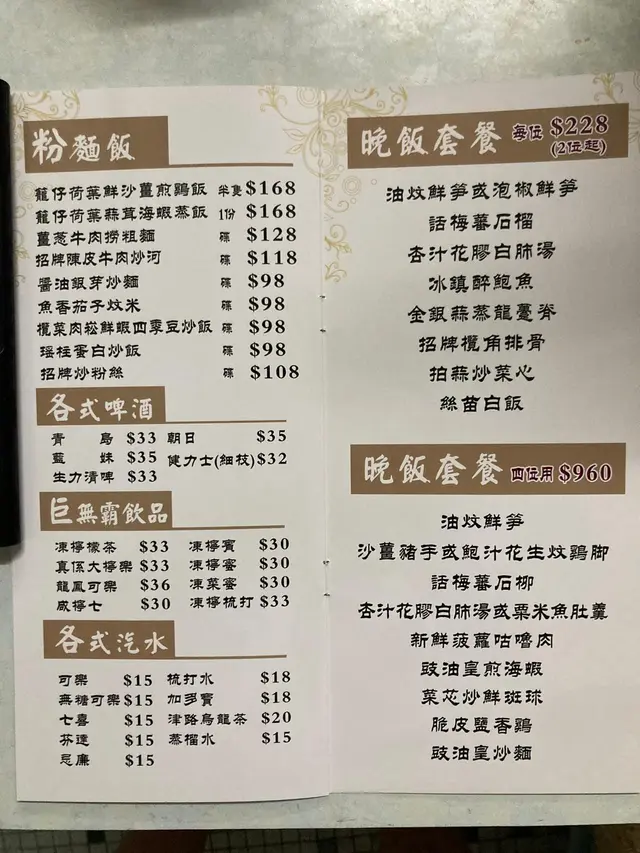 粉麵飯
籠仔荷葉鮮沙薑煎鷄飯 半隻 $168
籠仔荷葉蒜茸海蝦蒸飯 1份 $168
薑葱牛肉撈粗麵 碟 $128
招牌陳皮牛肉炒河 碟 $118
醬油銀芽炒麵 碟 $98
魚香茄子炆米 碟 $98
欖菜肉崧鮮蝦四季豆炒飯 碟 $98
瑶柱蛋白炒飯 碟 $98
招牌炒粉絲 碟 $108
各式啤酒
青島 $33 朝日 $35
藍妹 $35 健力士(細枝) $32
生力清啤 $33
巨無霸飲品
凍檸檬茶 $33 凍檸賓 $30
真係大檸樂 $33 凍檸蜜 $30
龍鳳可樂 $36 凍菜蜜 $30
咸檸七 $30 凍檸梳打 $33
各式汽水
可樂 $15 梳打水 $18
無糖可樂 $15 加多寶 $18
七喜 $15 津路烏龍茶 $20
芬達 $15 蒸榴水 $15
忌廉 $15
晚飯套餐 每位 $228
(2位起)
油炆鮮笋或泡椒鮮笋
話梅蕃石榴
杏汁花膠白肺湯
冰鎮醉鮑魚
金銀蒜蒸龍躉脊
招牌欖角排骨
拍蒜炒菜心
絲苗白飯
晚飯套餐 四位用 $960
油炆鮮笋
沙薑豬手或鮑汁花生炆鷄脚
話梅蕃石柳
杏汁花膠白肺湯或粟米魚肚羹
新鮮菠蘿咕嚕肉
豉油皇煎海蝦
菜芯炒鮮斑球
脆皮鹽香鷄
豉油皇炒麵